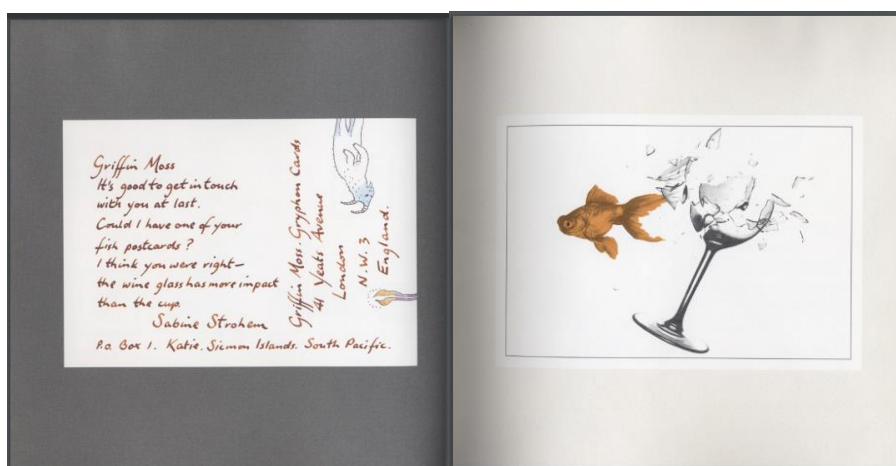 Griffin Moss
It's good to get in touch
with you at last.
Could I have one of your
fish postcards?
I think you were right—
the wine glass has more impact
than the cup.
Sabine Strohem
P.O. Box 1. Katie. Sicmon Islands. South Pacific.
Griffin Moss. Gryphon Cards
41 Yeats Avenue
London
N.W.3
England.